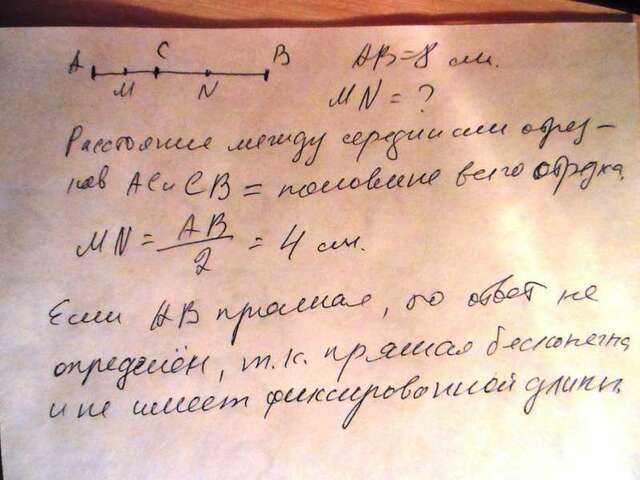 A C B AB=8 см.
M N MN=?
Расстояние между серединами отрез-
ков AC и CB = половине всего отрезка.
MN = AB/2 = 4 см.
Если AB прямая, то ответ не
определён, т.к. прямая бесконечна
и не имеет фиксированной длины.